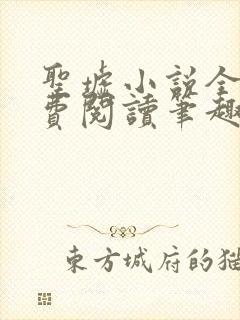 聖墟小說全
費閱讀筆趣
東方城府的猫